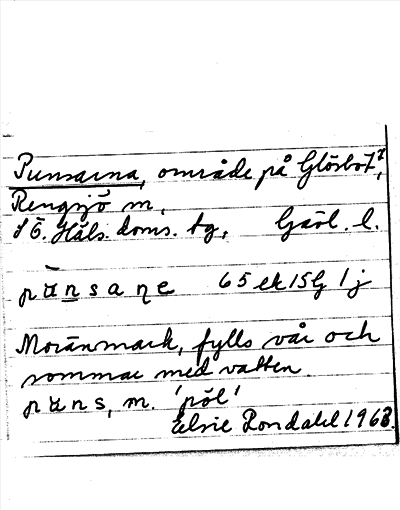 Punsarna, område på Glösbot?,
Rengsjö m,
S Ö. Häls. doms. tg, Gävl. l.
pʉ̄nsaɳe 65 ek 15G 1j
Moränmark, fylls vår och
sommar med vatten.
pʉns, m. 'pöl'
Elsie Rondahl 1963.